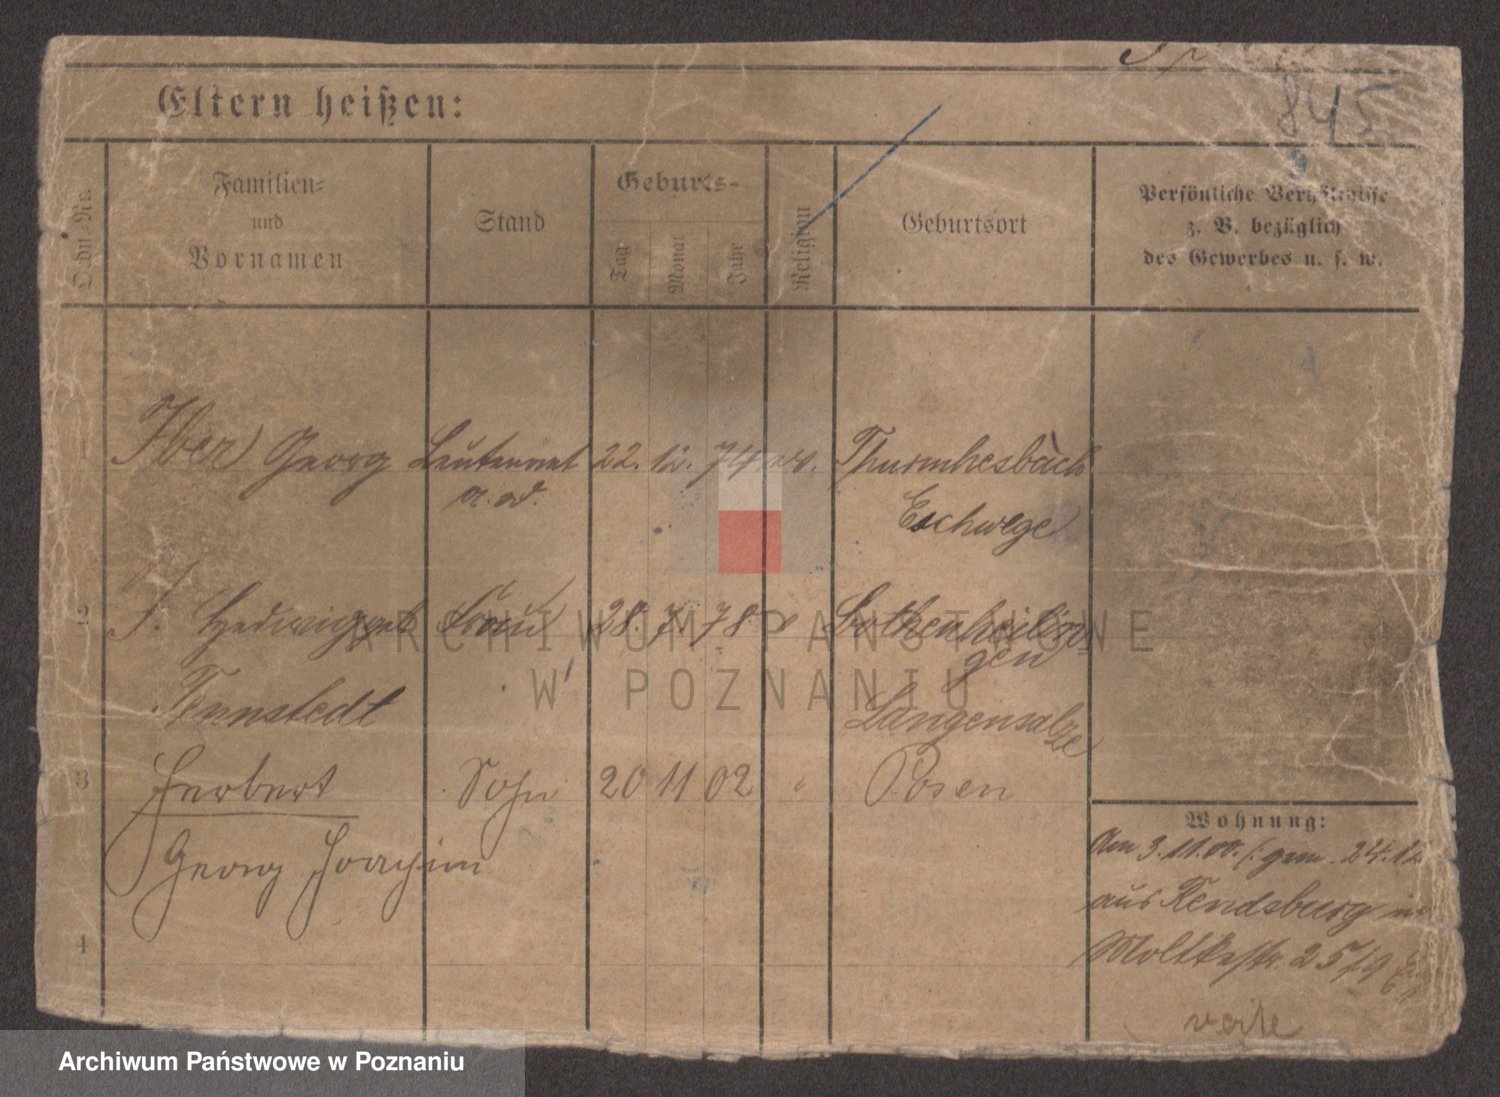 845
Eltern heißen:
Ordn.-No.
Familien-
und
Vornamen
Stand
Geburts-
Tag
Monat
Jahr
Religion
Geburtsort
Persönliche Verhältnisse
z. B. bezüglich
des Gewerbes u. s. w.
1
Iber Georg Leutenant 22. 12. 74 ev. Thurnhosbach
a. D.
Eschwege
2
I. Hedwig geb Frau 28. 7. 78 " Bothenheilin
gen
Tennstedt
Langensalza
3
Herbert Sohn 20 11 02 " Posen
Georg Joachim
4
Wohnung:
Am 3. 11. 00. /: gem. 24. 12
aus Rendsburg in
Moltkestr. 25/9
ARCHIWUM PAŃSTWOWE
W POZNANIU
Archiwum Państwowe w Poznaniu